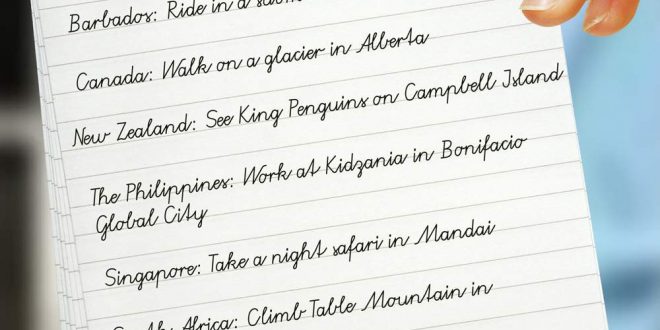 Barbados: Ride in a
Canada: Walk on a glacier in Alberta
New Zealand: See King Penguins on Campbell Island
The Philippines: Work at Kidzania in Bonifacio
Global City
Singapore: Take a night safari in Mandai
Africa: Climb Table Mountain in